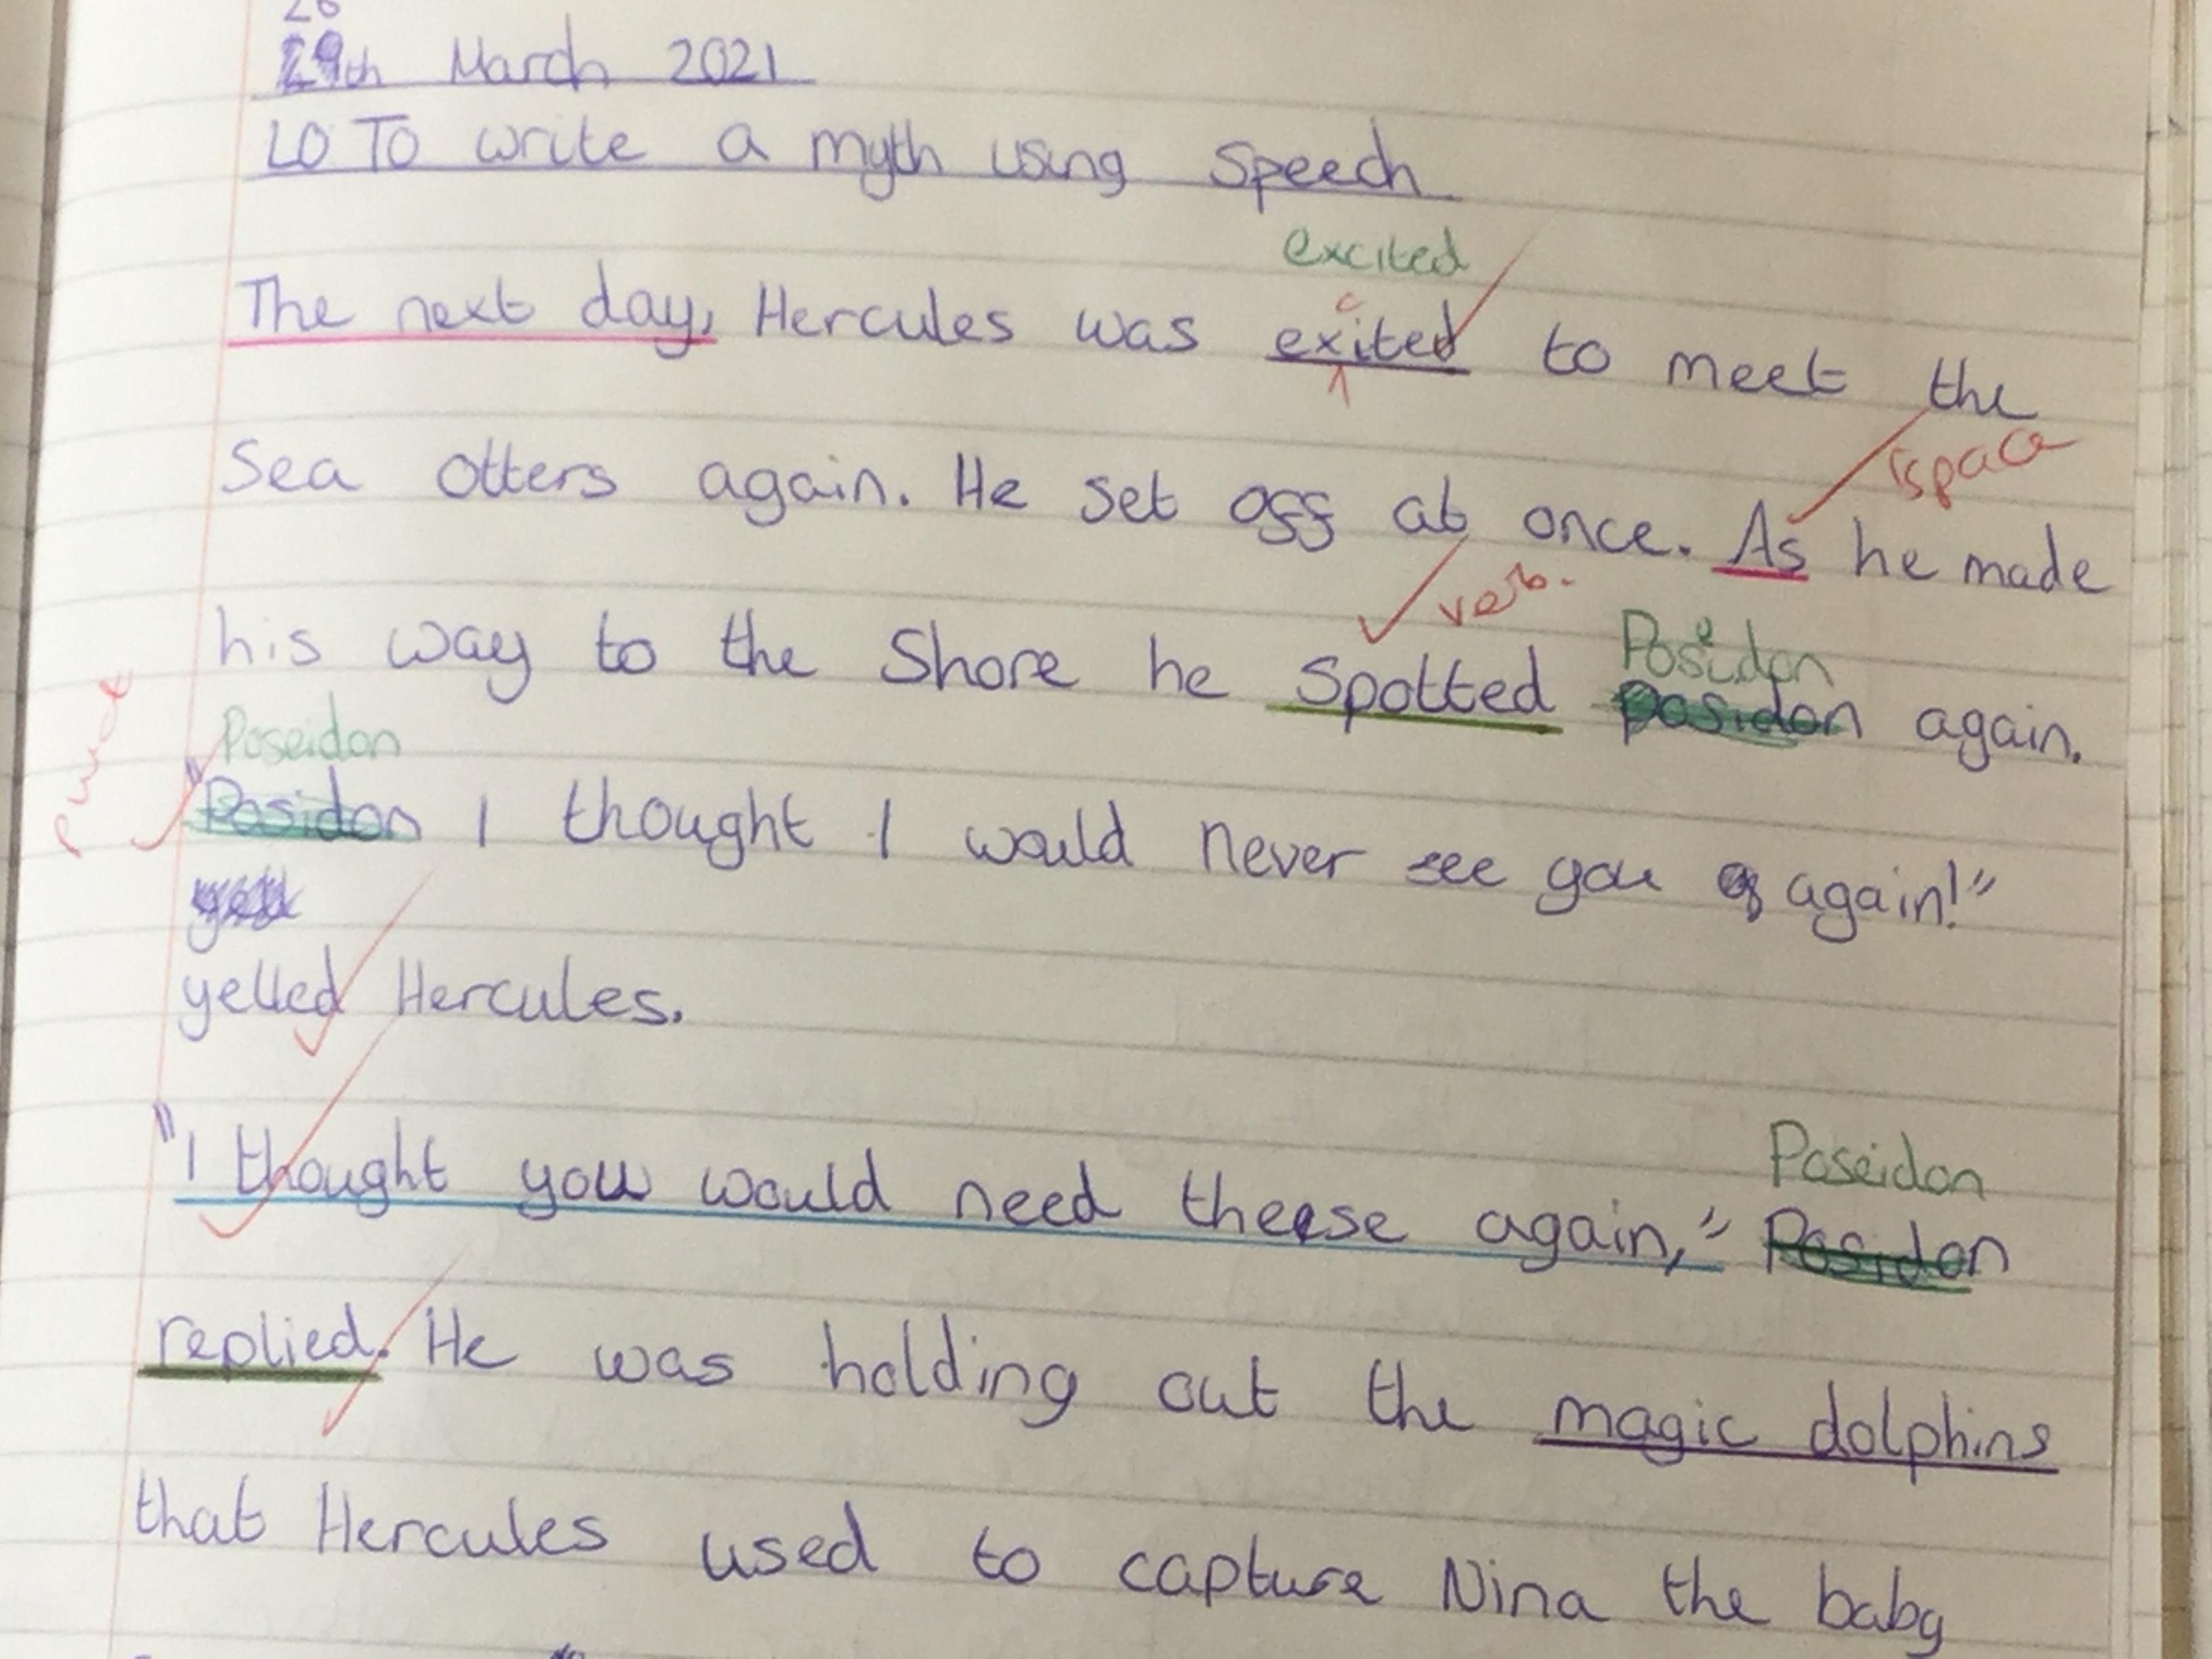 26
29th March 2021
LO To write a myth using Speech
excited
c
The next day, Hercules was exited to meet the
space
Sea otters again. He set off at once. As he made
verb.
Poseidon
his way to the Shore he Spotted posidon again.
Punct
Poseidon
"Posidon I thought I would never see you again!"
yelled Hercules.
Poseidon
"I thought you would need theese again," Posidon
replied. He was holding out the magic dolphins
that Hercules used to capture Nina the baby